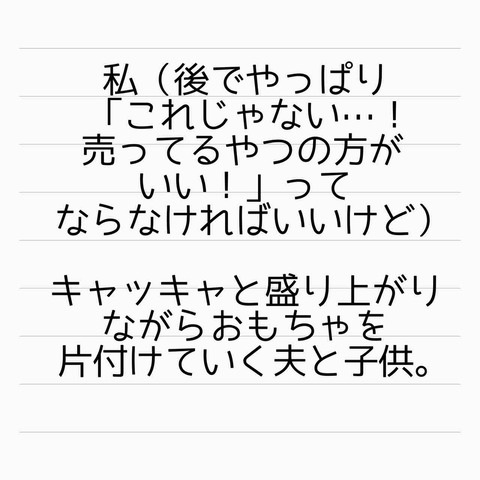 私（後でやっぱり
「これじゃない…！
売ってるやつの方が
いい！」って
ならなければいいけど）
キャッキャと盛り上がり
ながらおもちゃを
片付けていく夫と子供。